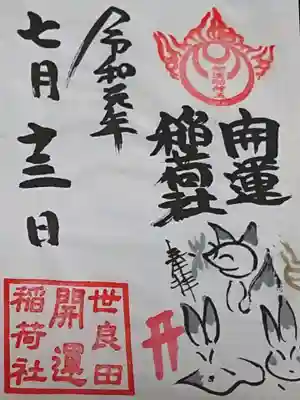 開運
稲荷社
奉拝
令和元年
七月十三日
世良田
開運
稲荷社